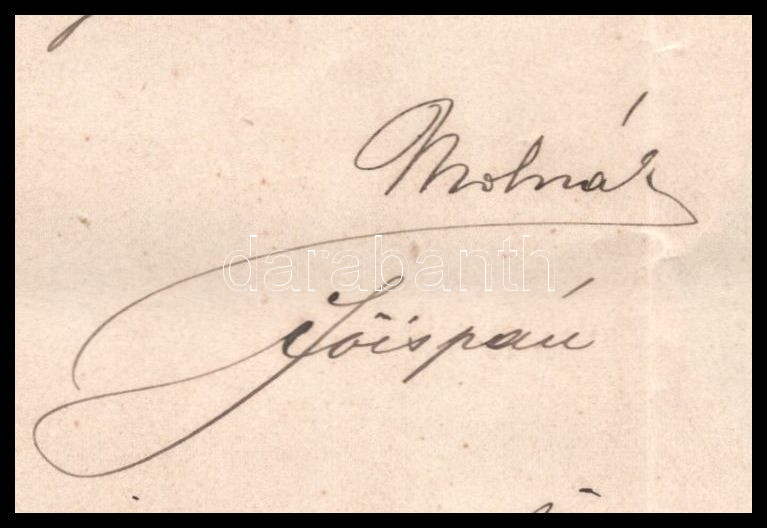 Molnár
főispán
darabanth